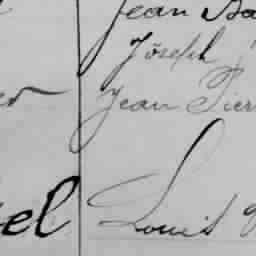 Jean
Joseph
Jean Pier
el Louis